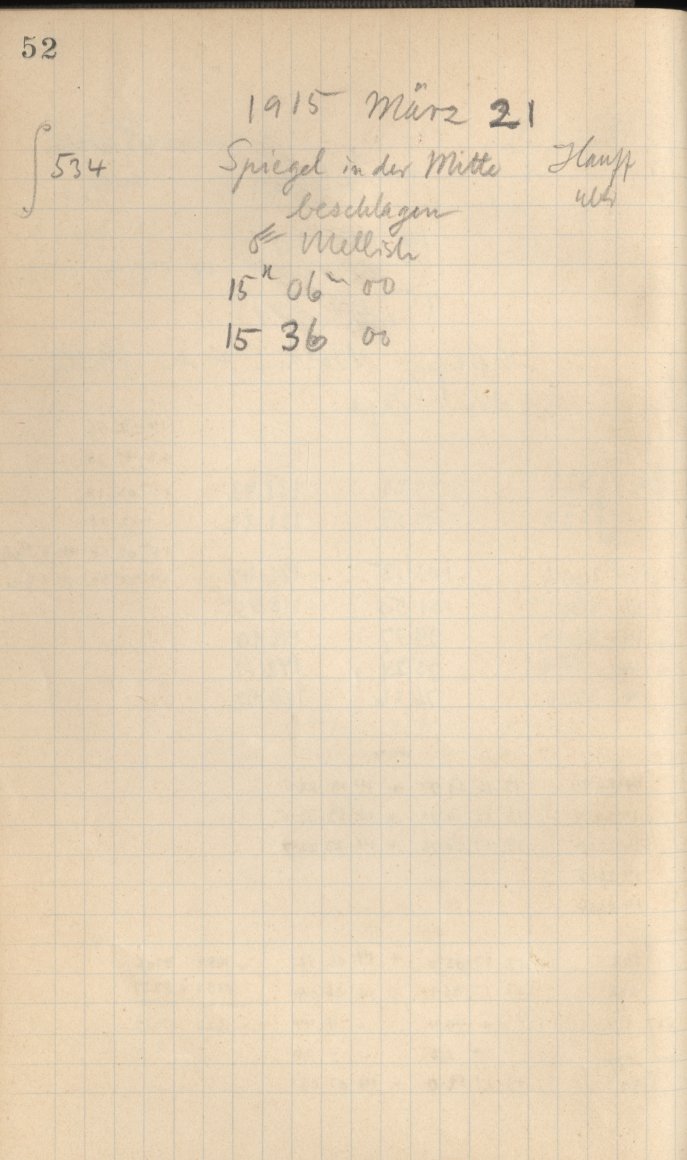 52
1915 März 21
∫ 534 Spiegel in der Mitte Hauff
beschlagen ultr
☄ Mellish
15ʰ 06ᵐ 00
15 36 00